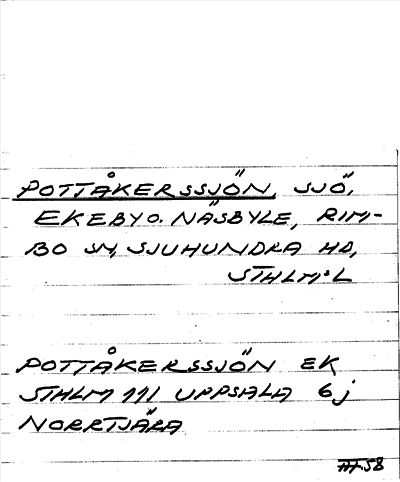 POTTÅKERSSJÖN, SJÖ,
EKEBY O. NÄSBYLE, RIM-
BO SN, SJUHUNDRA HD,
STHLM:S L
POTTÅKERSSJÖN EK
STHLM 111 UPPSALA 6 j
NORRTJÄRA
58